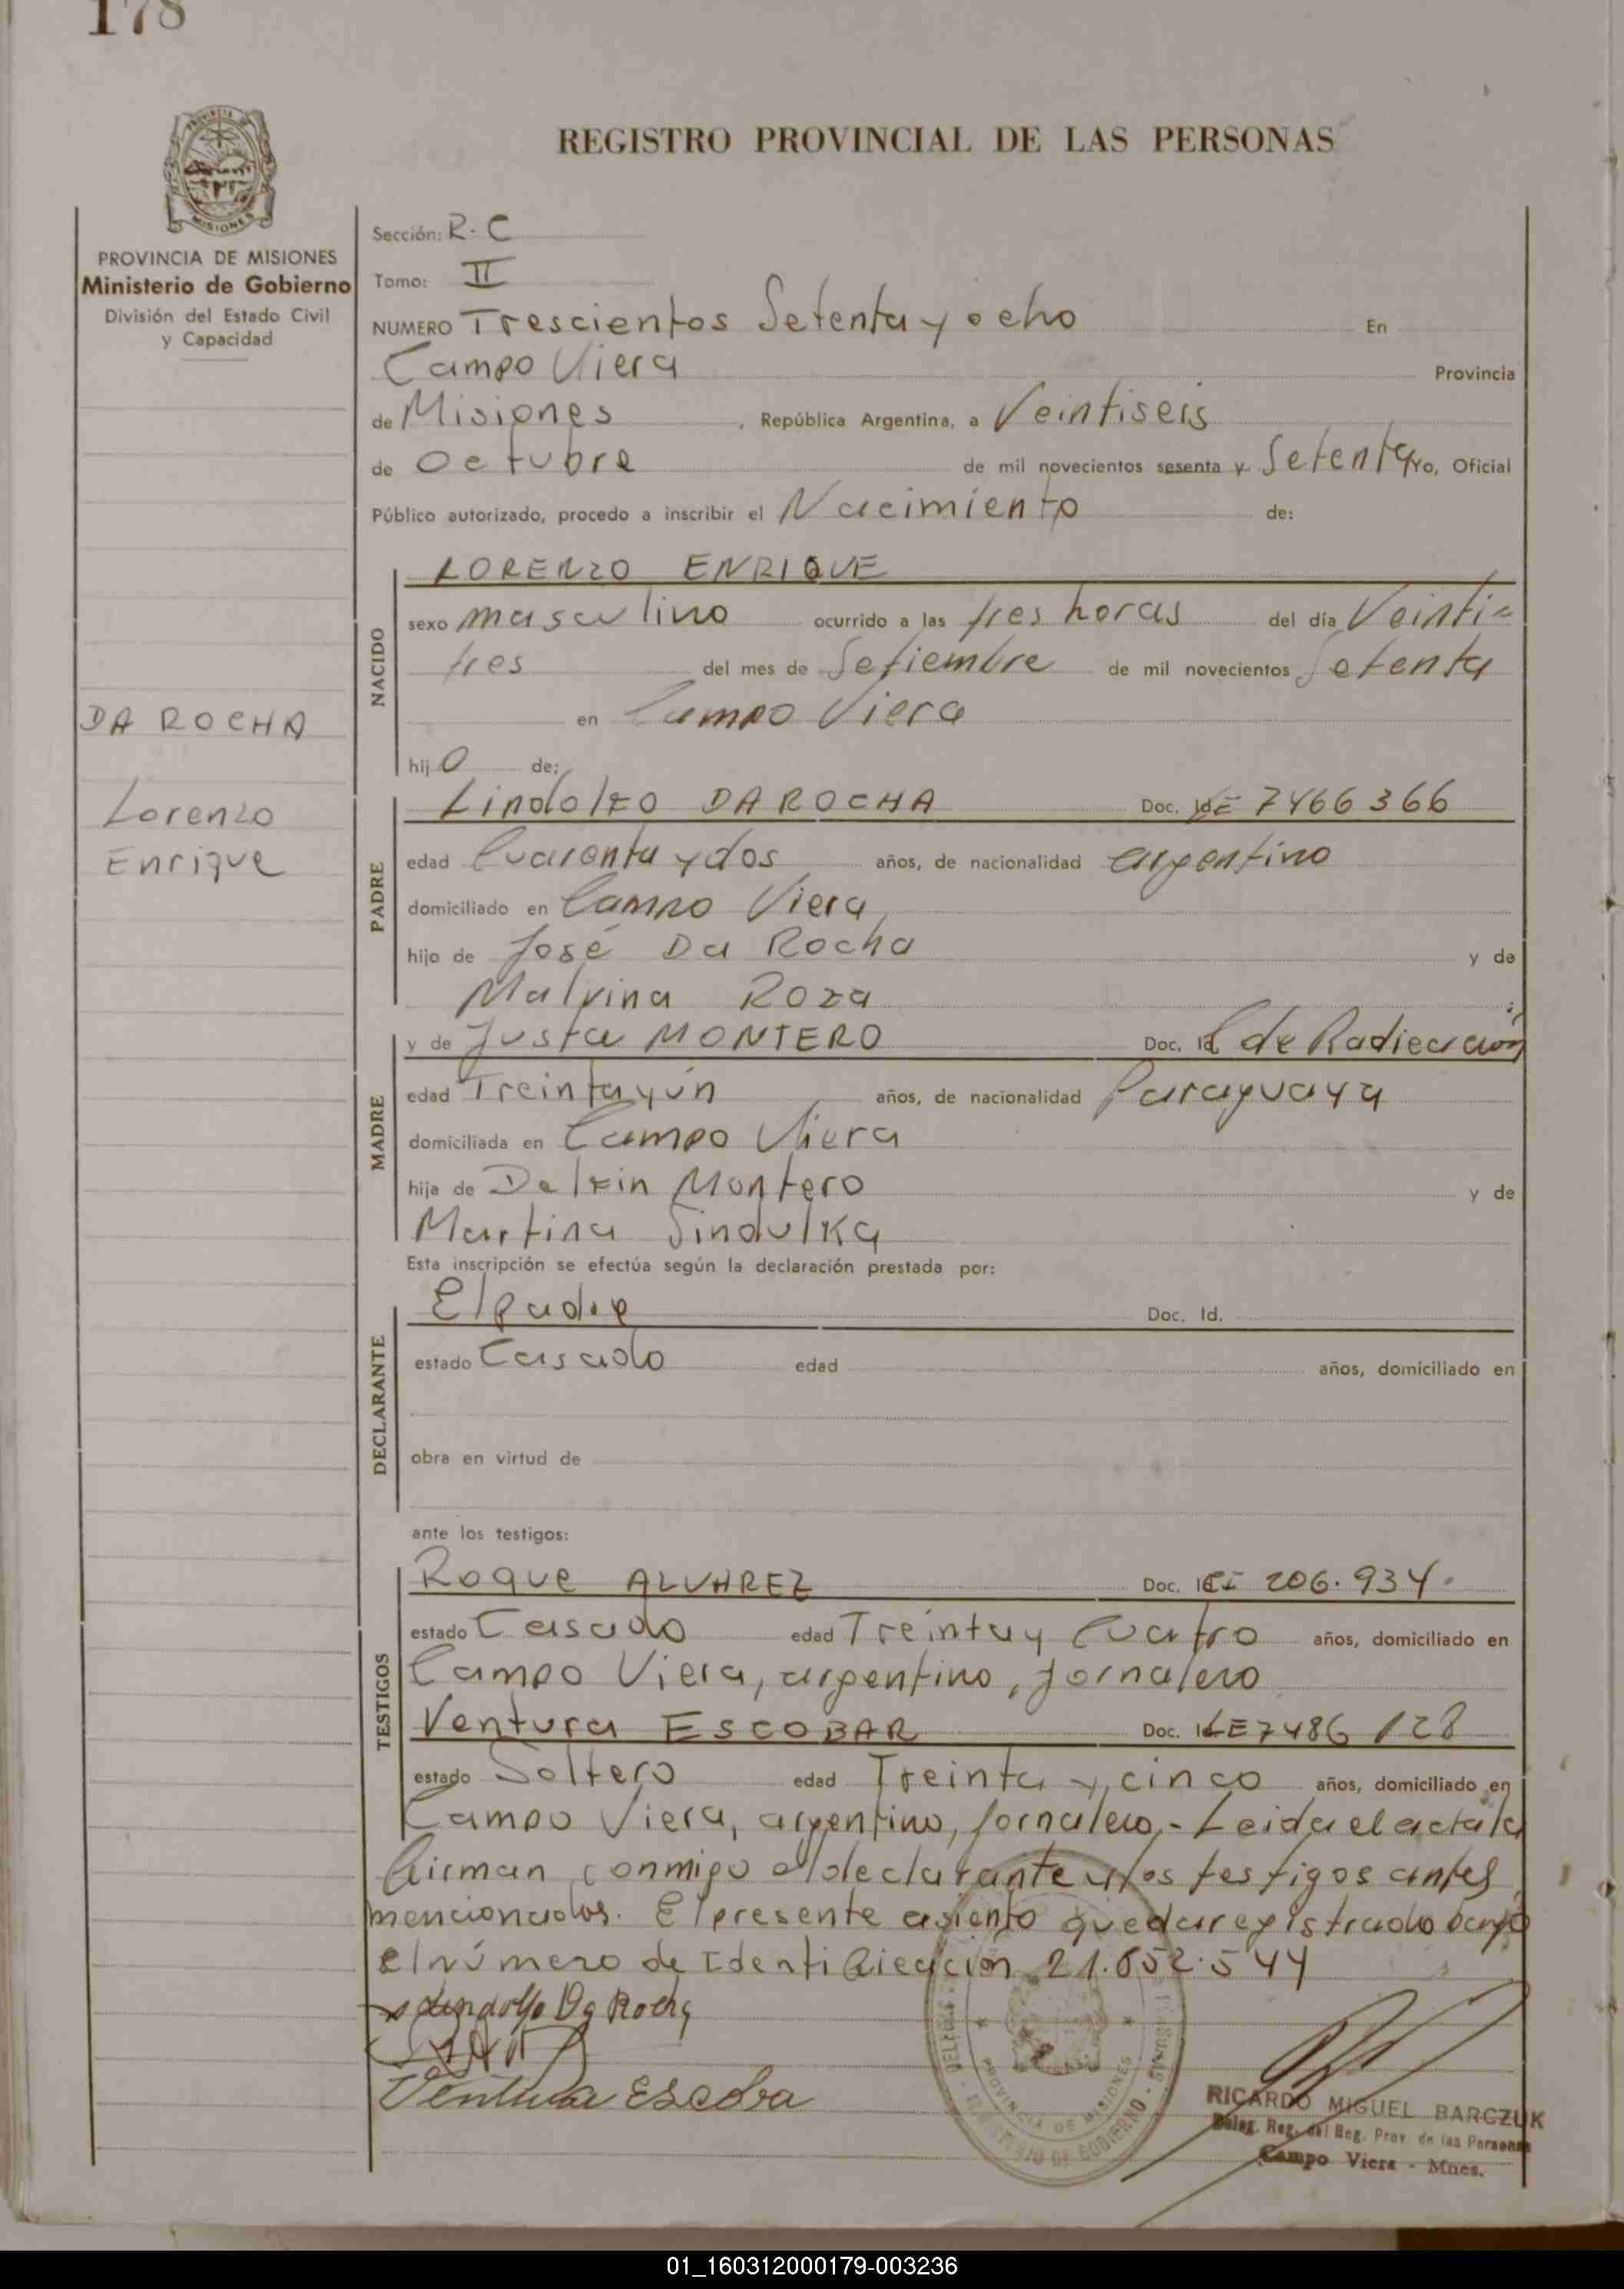 178
REGISTRO PROVINCIAL DE LAS PERSONAS
MISIONES
PROVINCIA DE MISIONES
Ministerio de Gobierno
División del Estado Civil
y Capacidad
DA ROCHA
Lorenzo
Enrique
Sección: R. C
Tomo: II
NUMERO Trescientos Setenta y ocho En
Campo Viera Provincia
de Misiones, República Argentina, a Veintiseis
de Octubre de mil novecientos sesenta y Setenta yo, Oficial
Público autorizado, procedo a inscribir el Nacimiento de:
NACIDO
LORENZO ENRIQUE
sexo masculino ocurrido a las tres horas del día Veinti=
tres del mes de Setiembre de mil novecientos Setenta
en Campo Viera
hijo de;
PADRE
Lindolfo DA ROCHA Doc. Id. LE 7466366
edad Cuarenta y dos años, de nacionalidad argentino
domiciliado en Campo Viera
hijo de José Da Rocha y de
Malvina Roza
MADRE
y de Justa MONTERO Doc. Id. C de Radicación
edad Treinta y ún años, de nacionalidad Paraguaya
domiciliada en Campo Viera
hija de Delfin Montero y de
Martina Sindulka
Esta inscripción se efectúa según la declaración prestada por:
DECLARANTE
El padre Doc. Id.
estado Casado edad años, domiciliado en
obra en virtud de
ante los testigos:
TESTIGOS
Roque ALVAREZ Doc. Id. CI 206.934.
estado Casado edad Treinta y Cuatro años, domiciliado en
Campo Viera, argentino, jornalero
Ventura ESCOBAR Doc. Id. LE 7486128
estado Soltero edad Treinta y cinco años, domiciliado en
Campo Viera, argentino, jornalero,- Leida el acta la
firman conmigo el declarante y los testigos antes
mencionados. El presente asiento queda registrado bajo
el número de Identificación 21.652.544
Lindolfo Da Rocha
Ventura Escoba
PROVINCIA DE MISIONES
MINISTERIO DE GOBIERNO
RICARDO MIGUEL BARCZUK
Deleg. Reg. del Reg. Prov. de las Personas
Campo Viera - Mnes.
01_160312000179-003236